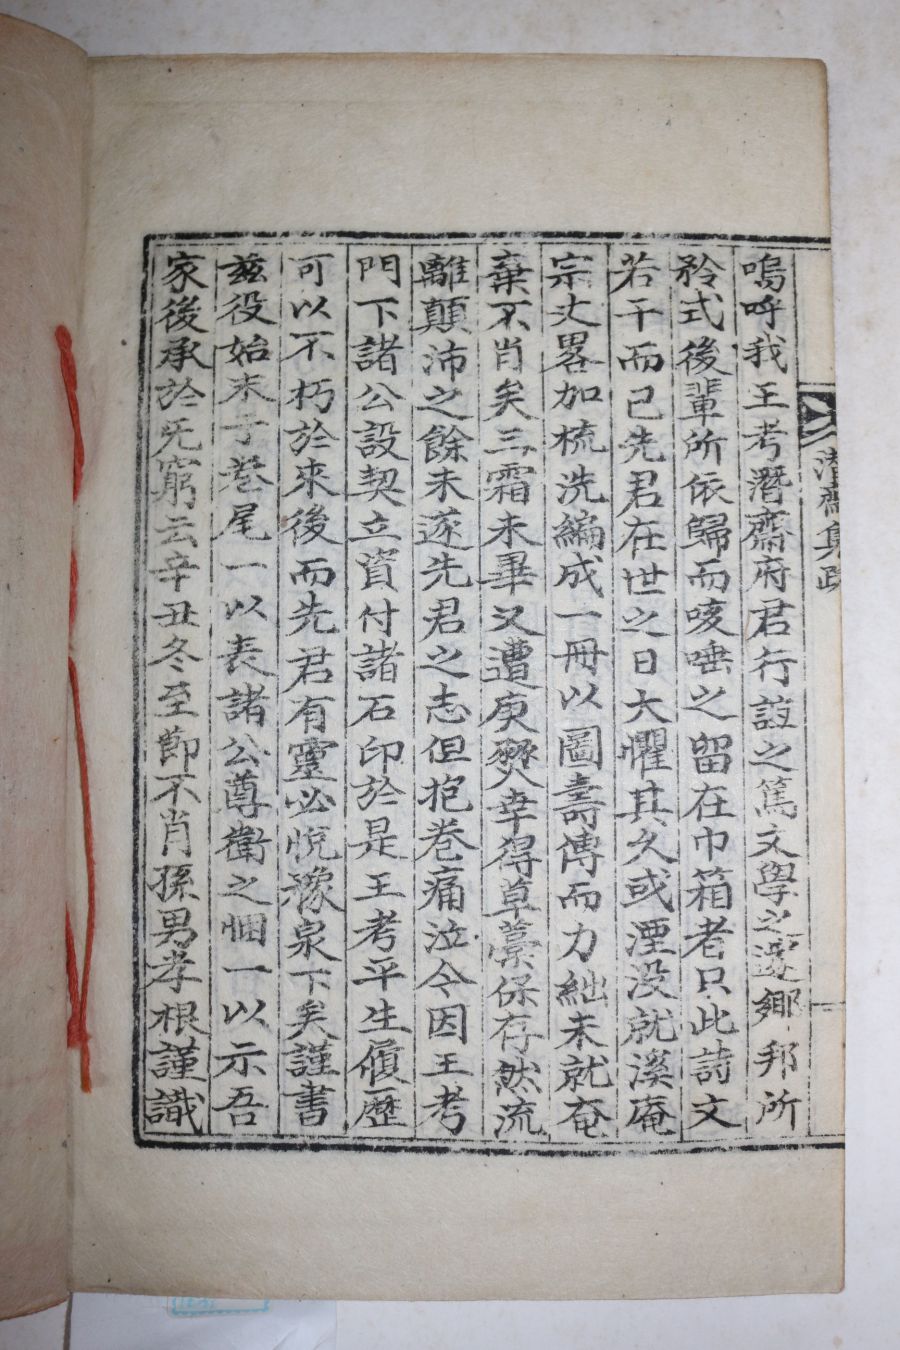 潛齋集跋
嗚呼我王考潛齋府君行誼之篤文學之邃鄉邦所
矜式後輩所依歸而咳唾之留在巾箱者只此詩文
若干而已先君在世之日大懼其久或湮没就溪庵
宗丈畧加梳洗編成一冊以圖壽傳而力絀未就奄
棄不肖矣三霜未畢又遭庚爕幸得草藁保存然流
離顛沛之餘未遂先君之志但抱卷痛泣今因王考
門下諸公設契立資付諸石印於是王考平生履歷
可以不朽於來後而先君有靈必悅豫泉下矣謹書
玆役始末于卷尾一以表諸公尊衛之悃一以示吾
家後承於无窮云辛丑冬至節不肖孫男孝根謹識